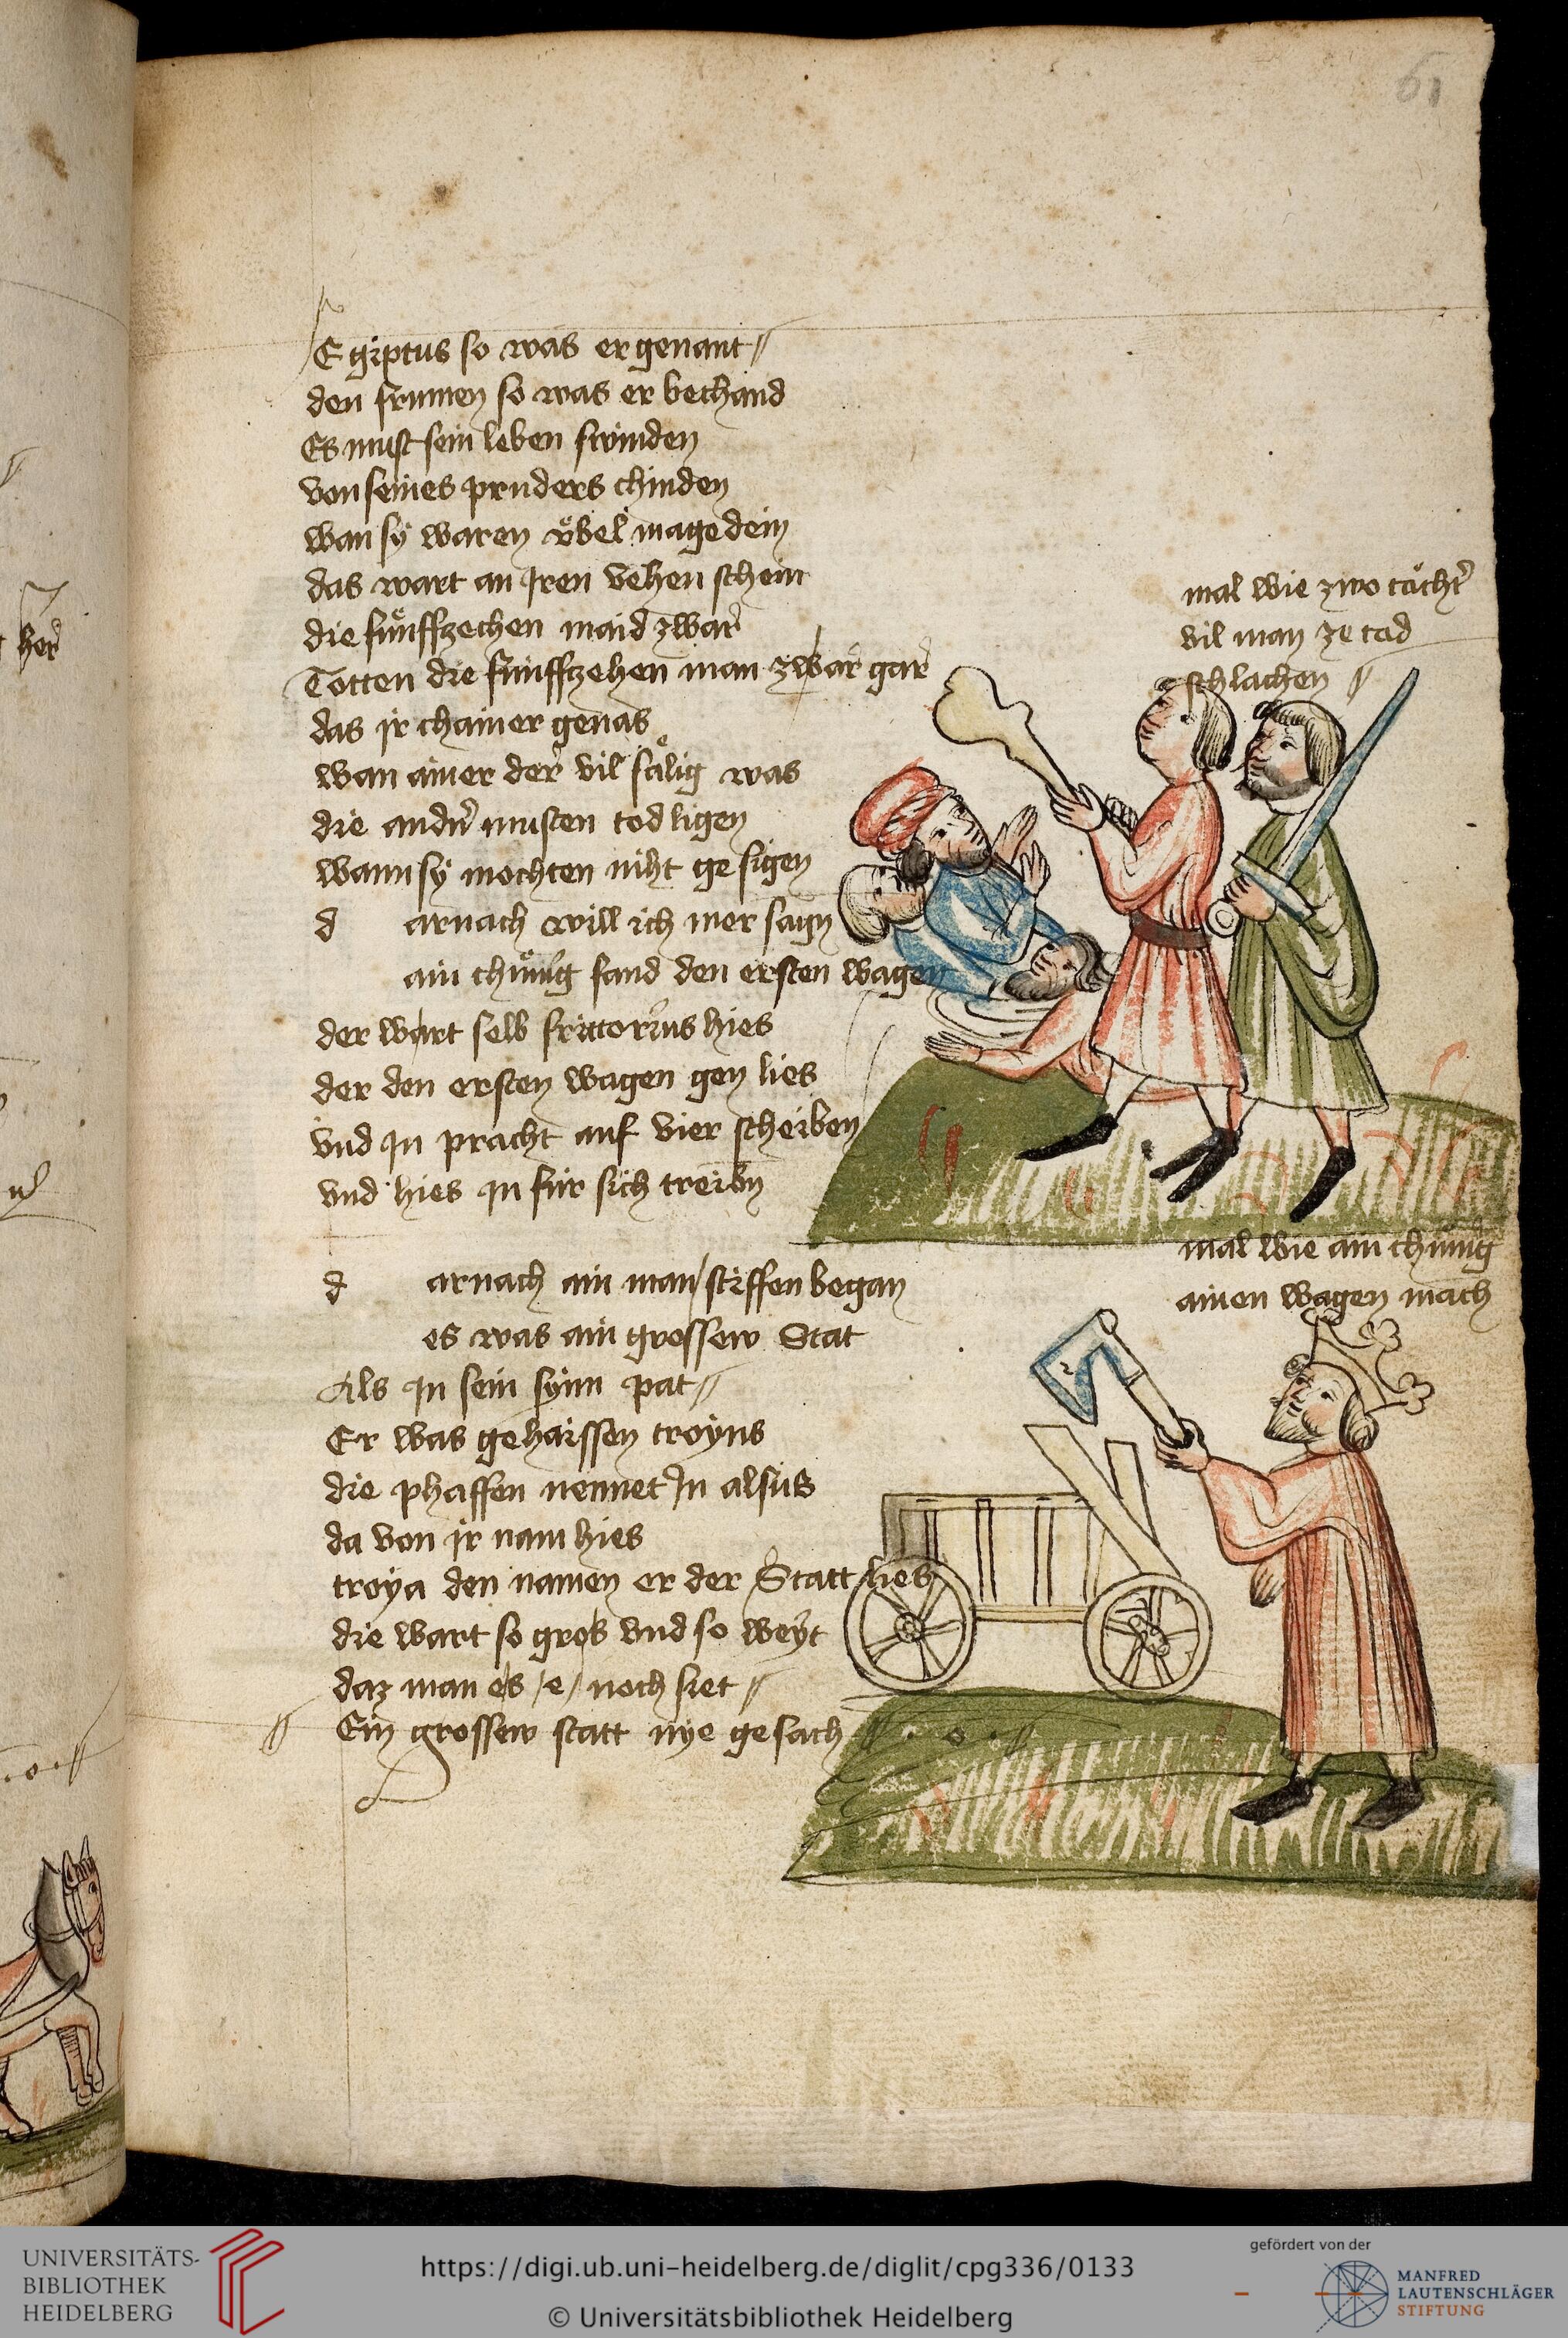 61
Egiptus so was er genant
den frumen so was er bechand
Es must sein leben swinden
von seines pruders chinden
wan sÿ waren vͤbel magedein
das wart an Iren vehen schein
die fuͤnffzechen maid zwar
Totten die funffzehen man zwar gar
das ir chainer genas
wan ainer der vil saͤlig was
die andn̄ musten tod ligen
wann sÿ mochten niht gesigen
d arnach will ich mer sagn
ain chuͤnig fand den ersten wagen
der wart selb hies
der den ersten wagen gen lies
vnd In pracht auf vier scheiben
vnd hies In für sich treibn
mal wie zwo toͤchtr̄
vil man ze tod
schlachen
d arnach ain man stiffen began
es was ain grossew Stat
Als In sein synn pat
Er was gehaissen troyus
die phaffen nennet In alsus
da von ir nam hies
troya den namen er der Statt lies
die wart so gros vnd so weÿt
daz man es e noch siet
Ein grossew statt nye gesach
mal wie ain chünig
ainen wagen mach
her
UNIVERSITÄTS-
BIBLIOTHEK
HEIDELBERG
https://digi.ub.uni-heidelberg.de/diglit/cpg336/0133
© Universitätsbibliothek Heidelberg
gefördert von der
MANFRED
LAUTENSCHLÄGER
STIFTUNG